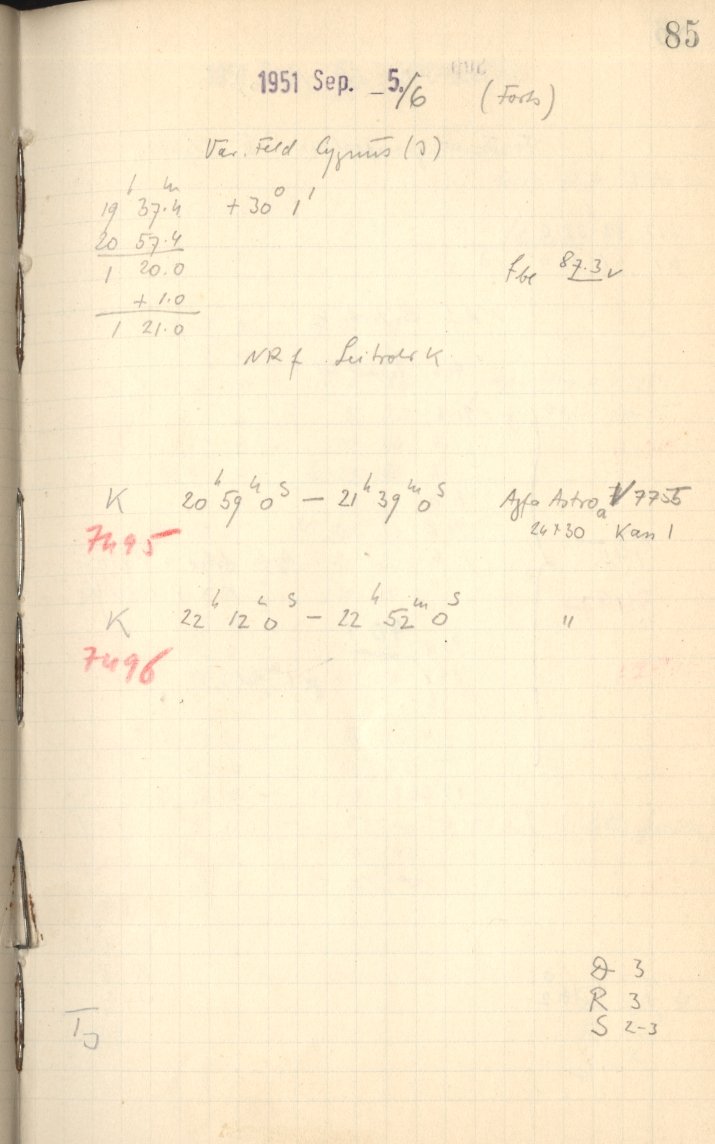 85
1951 Sep. _5./6 (Forts)
Var. Feld Cygnus (J)
19 h 37.4 m + 30° 1'
20 57.4
1 20.0
+ 1.0
1 21.0
87.3
NR f. Leitrohr K
K 20h 59m 0s — 21h 39m 0s Agfa Astro 7755
7495 24×30 Kan 1
K 22h 12m 0s — 22h 52m 0s "
7496
3
R 3
S 2-3